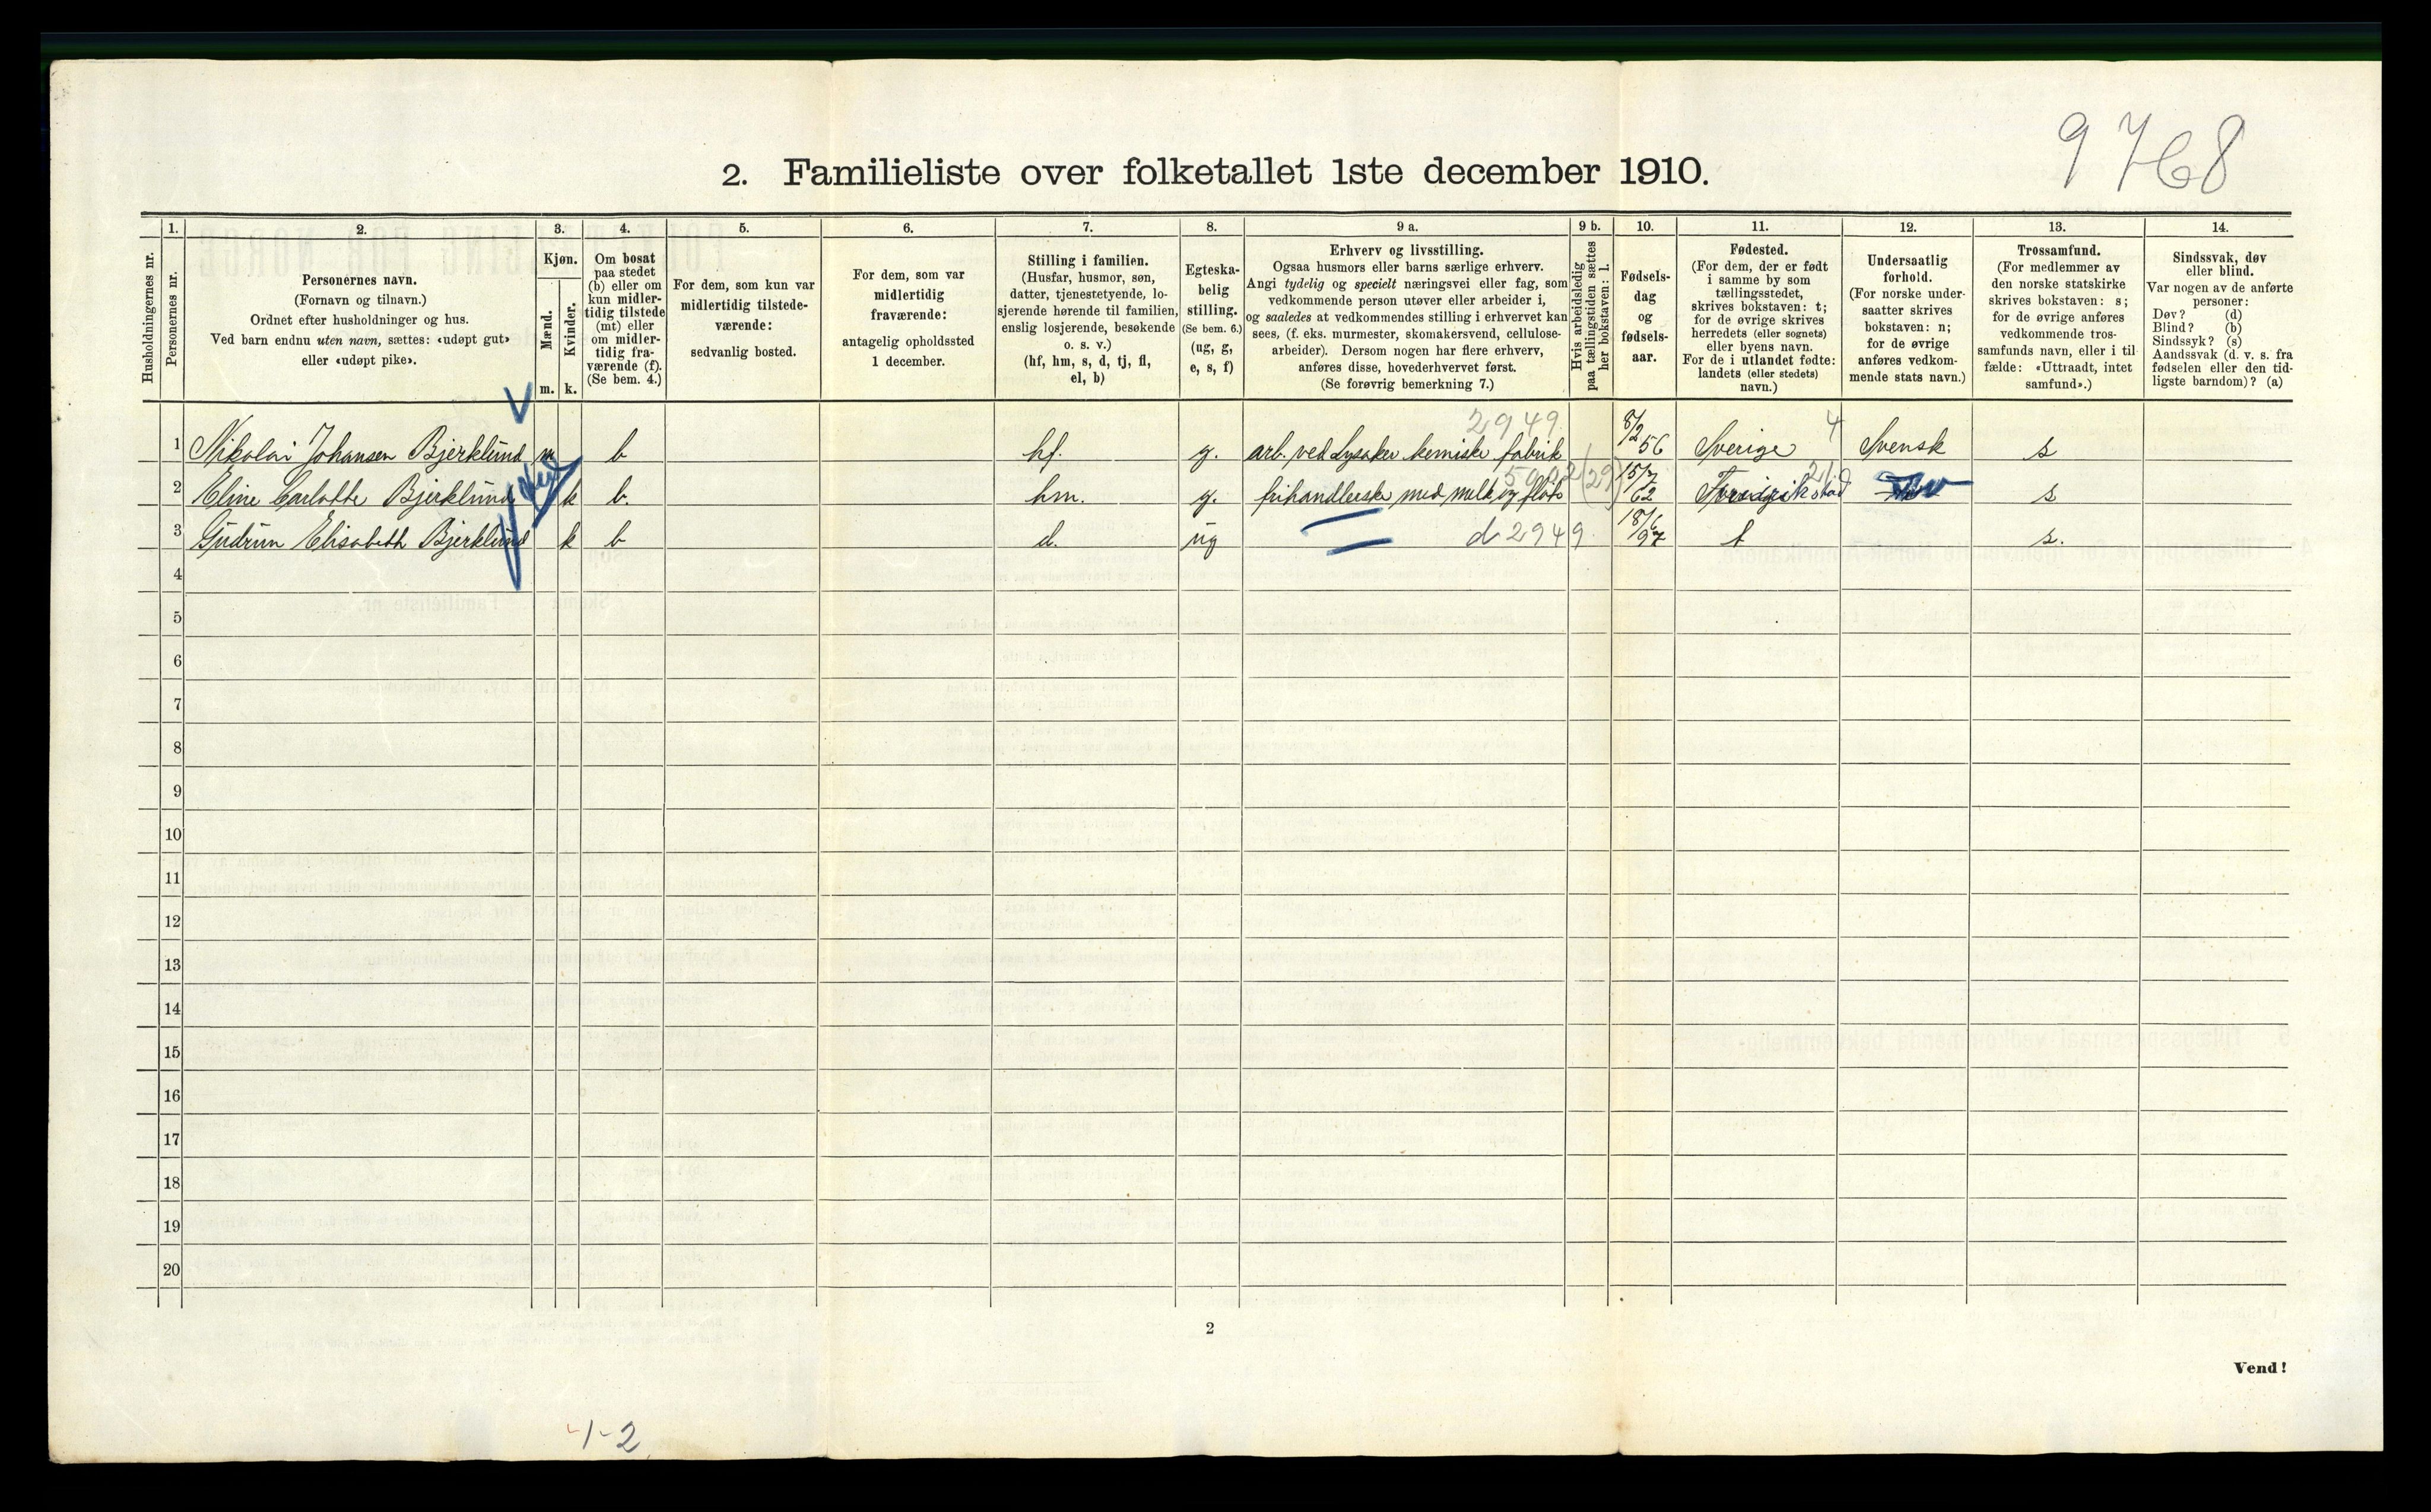 9768
2. Familieliste over folketallet 1ste december 1910.
Husholdningernes nr.
1.
Personernes nr.
2.
Personernes navn.
(Fornavn og tilnavn.)
Ordnet efter husholdninger og hus.
Ved barn endnu uten navn, sættes: «udøpt gut»
eller «udøpt pike».
3.
Kjøn.
Mænd.
m.
Kvinder.
k.
4.
Om bosat
paa stedet
(b) eller om
kun midler-
tidig tilstede
(mt) eller
om midler-
tidig fra-
værende (f).
(Se bem. 4.)
5.
For dem, som kun var
midlertidig tilstede-
værende:
sedvanlig bosted.
6.
For dem, som var
midlertidig
fraværende:
antagelig opholdssted
1 december.
7.
Stilling i familien.
(Husfar, husmor, søn,
datter, tjenestetyende, lo-
sjerende hørende til familien,
enslig losjerende, besøkende
o. s. v.)
(hf, hm, s, d, tj, fl,
el, b)
8.
Egteska-
belig
stilling.
(Se bem. 6.)
(ug, g,
e, s, f)
9 a.
Erhverv og livsstilling.
Ogsaa husmors eller barns særlige erhverv.
Angi tydelig og specielt næringsvei eller fag, som
vedkommende person utøver eller arbeider i,
og saaledes at vedkommendes stilling i erhvervet kan
sees, (f. eks. murmester, skomakersvend, cellulose-
arbeider). Dersom nogen har flere erhverv,
anføres disse, hovederhvervet først.
(Se forøvrig bemerkning 7.)
9 b.
Hvis arbeidsledig
paa tællingstiden sættes
her bokstaven: l.
10.
Fødsels-
dag
og
fødsels-
aar.
11.
Fødested.
(For dem, der er født
i samme by som
tællingsstedet,
skrives bokstaven: t;
for de øvrige skrives
herredets (eller sognets)
eller byens navn.
For de i utlandet fødte:
landets (eller stedets)
navn.)
12.
Undersaatlig
forhold.
(For norske under-
saatter skrives
bokstaven: n;
for de øvrige
anføres vedkom-
mende stats navn.)
13.
Trossamfund.
(For medlemmer av
den norske statskirke
skrives bokstaven: s;
for de øvrige anføres
vedkommende tros-
samfunds navn, eller i til-
fælde: «Uttraadt, intet
samfund».)
14.
Sindssvak, døv
eller blind.
Var nogen av de anførte
personer:
Døv? (d)
Blind? (b)
Sindssyk? (s)
Aandssvak (d. v. s. fra
fødselen eller den tid-
ligste barndom)? (a)
2949 4
1 Nikolai Johansen Bjerklund m b hf. g. arb. ved Lysaker kemiske fabrik 8/2 56 Sverige Svensk s
5902 (29) 21
2 Eline Carlotte Bjerklund k b. hm. g. frihandlerske med melk og fløte 15/7 62 Fredrikstad s
3 Gudrun Elisabeth Bjerklund k b d. ug d 2949 18/6 97 t s.
4
5
6
7
8
9
10
11
12
13
14
15
16
17
18
19
20
2
Vend!
1-2